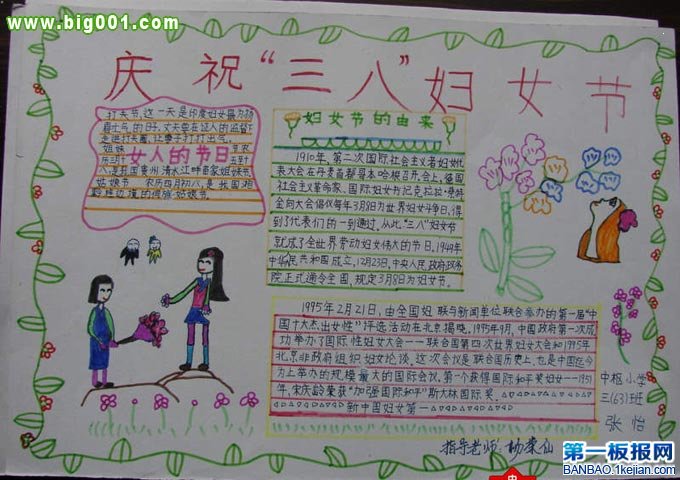 www.big001.com
庆祝“三八”妇女节
打夫节,这一天是印度妇女最为扬
眉士气的日子,丈夫呆在证人的监督下
走进打夫圈,让妻子打打出气。
姐妹
女人的节日
八,是我国贵州清水江畔苗家姐妹节
姑娘节 农历四月初八,是我国湘
妇女节的由来
1910年,第二次国际社会主义者妇女代
表大会在丹麦首都哥本哈根召开,会上,德国
社会主义革命家、国际妇女与克拉拉·
会向大会倡仪每年3月8日为世界妇女斗争日,得
到了代表们的一到通过,从此“三八”妇女节
就成了全世界劳动妇女伟大的节日,1949年
中华人民共和国成立,12月23日,中央人民政府政务
院正式通令全国,规定3月8日为妇女节。
1995年2月21日,由全国妇联与新闻单位联合举办的第一届“中
国十大杰出女性”评选活动在北京揭晓,1995年9月,中国政府第一次成
功举办了国际性妇女大会——联合国第四次世界妇女大会和1995年
北京非政府组织妇女论谈,这次会议是联合国历史上,也是中国迄今
为上举办的规模最大的国际会议,第一个获得国际和平奖妇女——1951
年,宋庆龄荣获“加强国际和平”斯大林国际奖
新中国妇女第一
中枢小学
三(63)班
张怡
指导老师:杨荣仙
第一板报网
BANBAO.1kejian.com